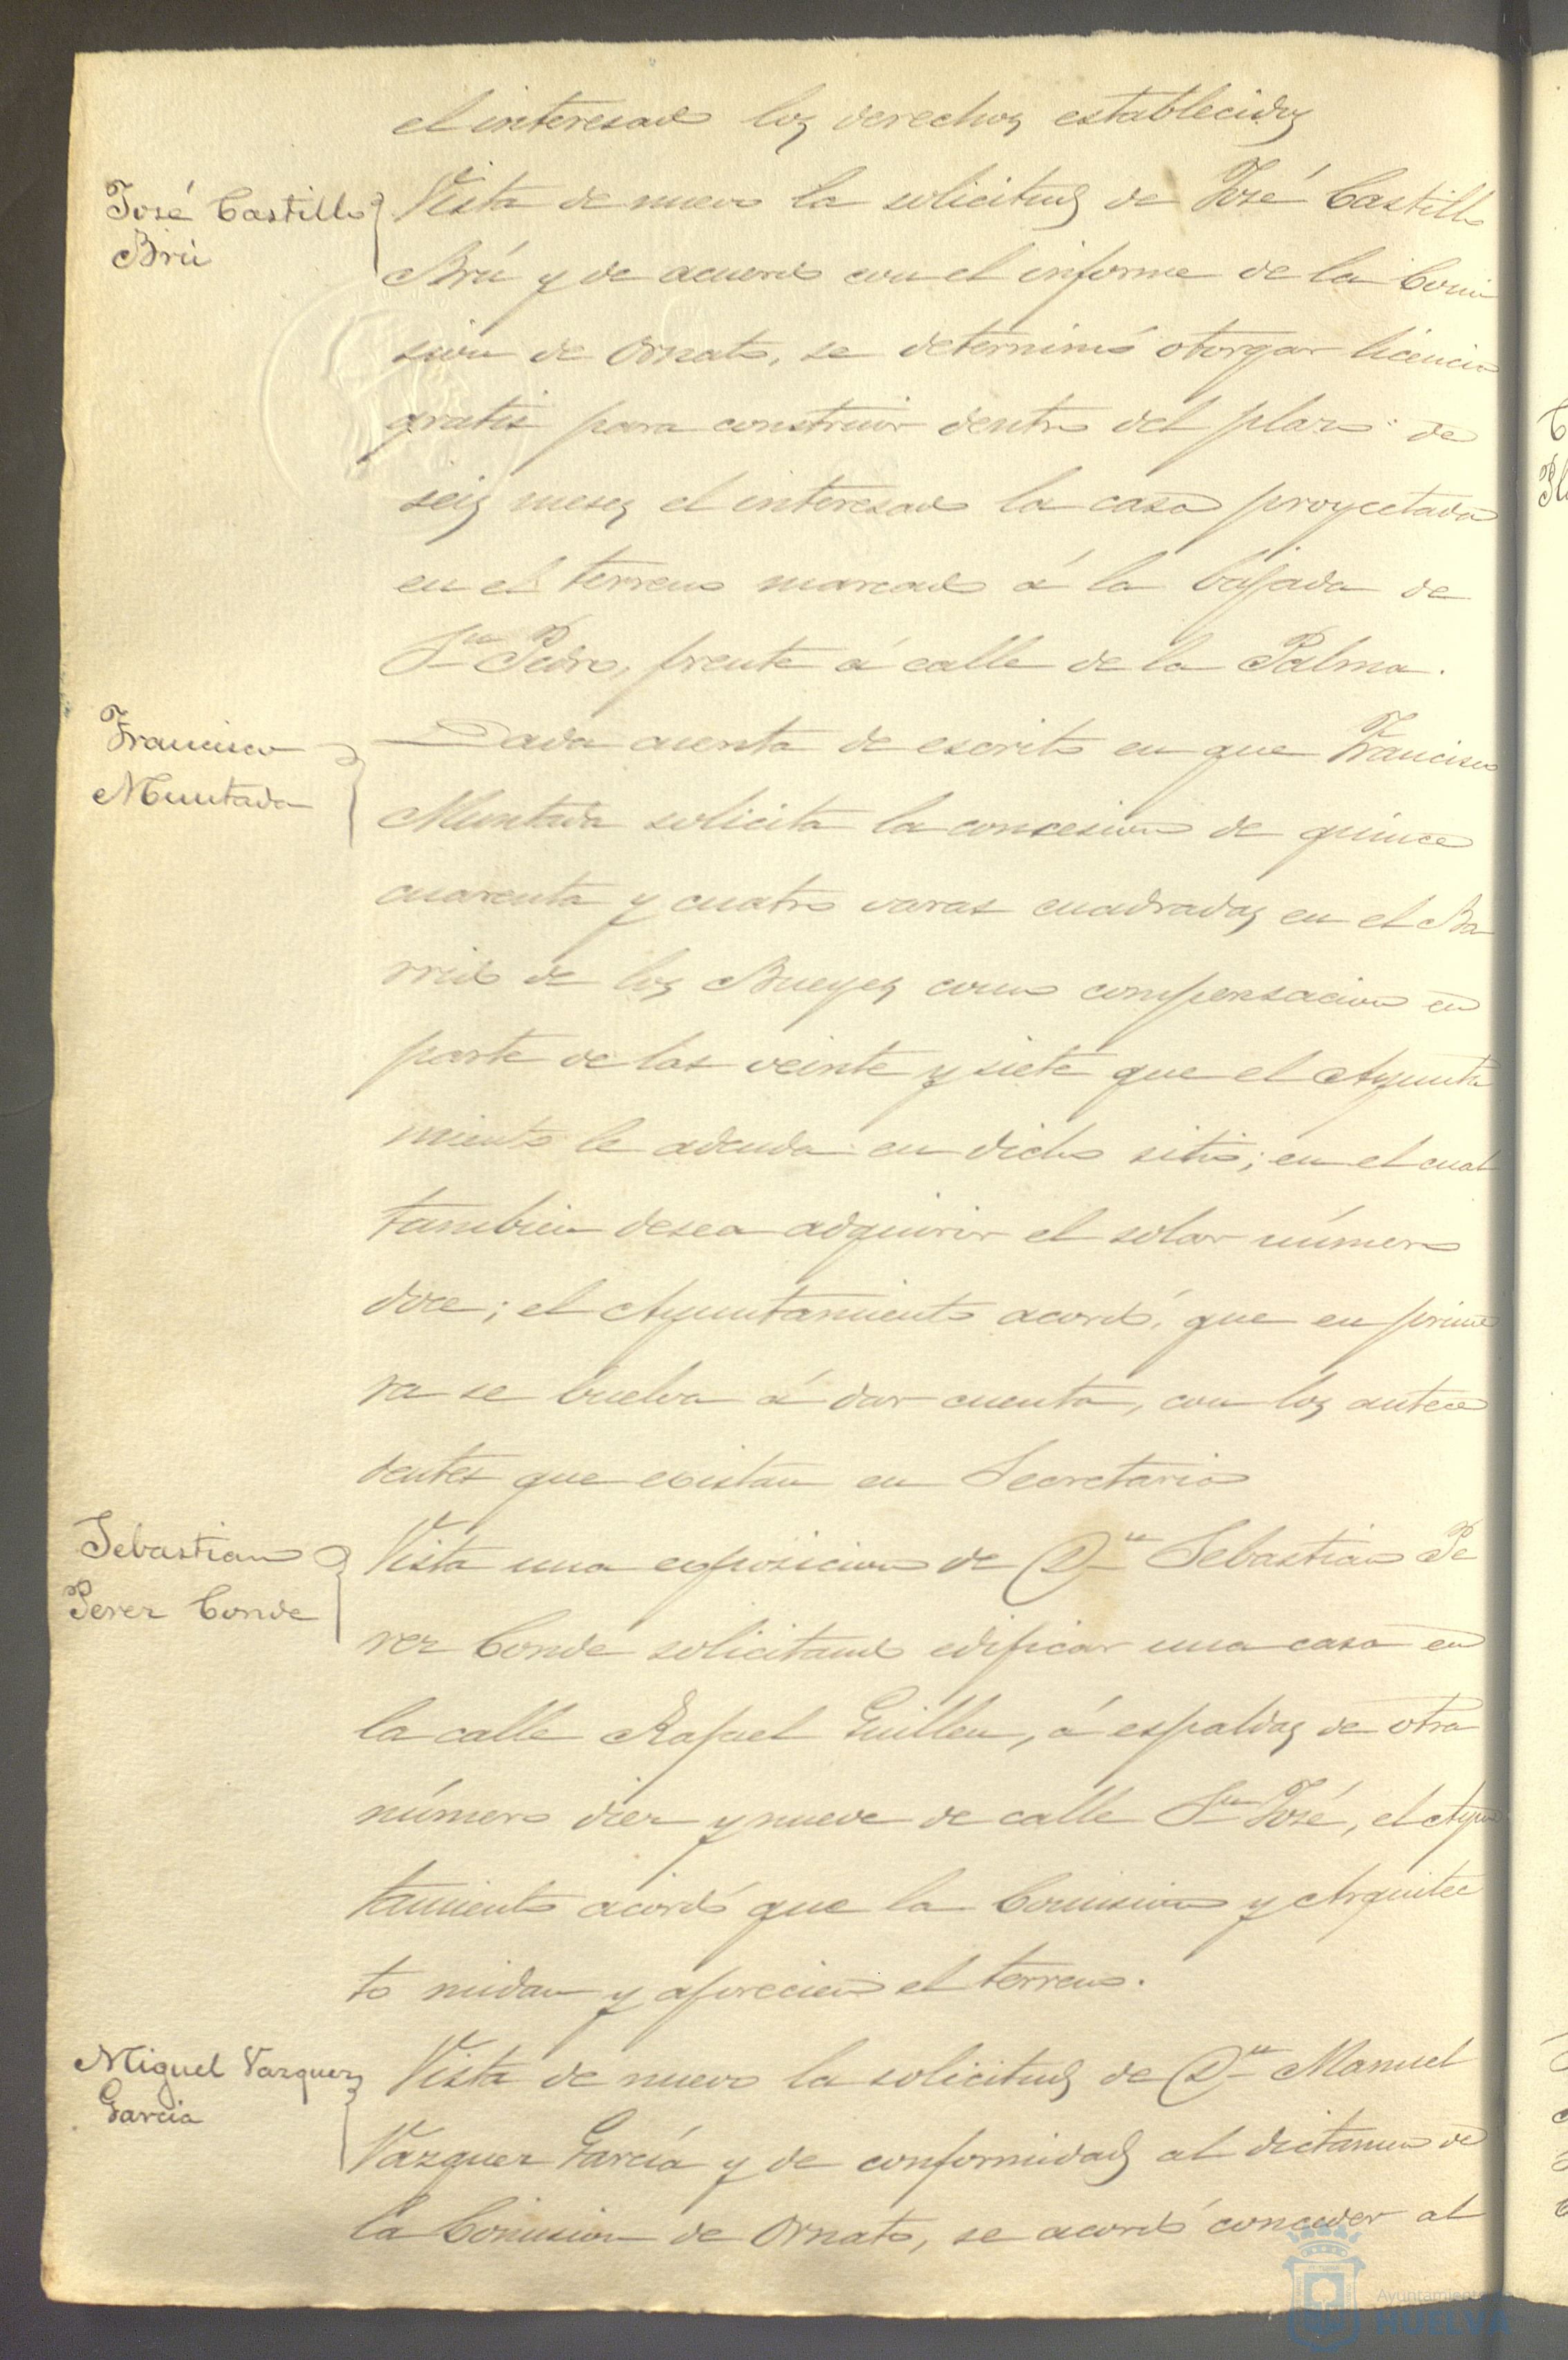 el interesado los derechos establecidos
José Castillo
Brú
Vista de nuevo la solicitud de José Castillo
Brú y de acuerdo con el informe de la Comi
sion de Ornato, se determinó otorgar licencia
gratis para construir dentro del plazo de
seis meses el interesado la casa proyectada
en el terreno marcado á la bajada de
Sn Pedro, frente á calle de la Palma.
Francisco
Muntada
Dada cuenta de escrito en que Francisco
Muntada solicita la concesion de quince
cuarenta y cuatro varas cuadradas en el Ba
rrio de los Bueyes como compensacion en
parte de las veinte y siete que el Ayunta
miento le adeuda en dicho sitio; en el cual
tambien desea adquirir el solar número
doce; el Ayuntamiento acordó, que en prime
ra se buelva á dar cuenta, con los antece
dentes que existan en Secretaria
Sebastian
Perez Conde
Vista una exposicion de Dn Sebastian Pe
rez Conde solicitando edificar una casa en
la calle Rafael Guillen, á espaldas de otra
número diez y nueve de calle Sn José, el Ayun
tamiento acordó que la Comision y Arquitec
to midan y aprecien el terreno.
Miguel Vazquez
Garcia
Vista de nuevo la solicitud de Dn Manuel
Vazquez García y de conformidad al dictamen de
la Comision de Ornato, se acordó conceder al
Ayuntamiento
HUELVA